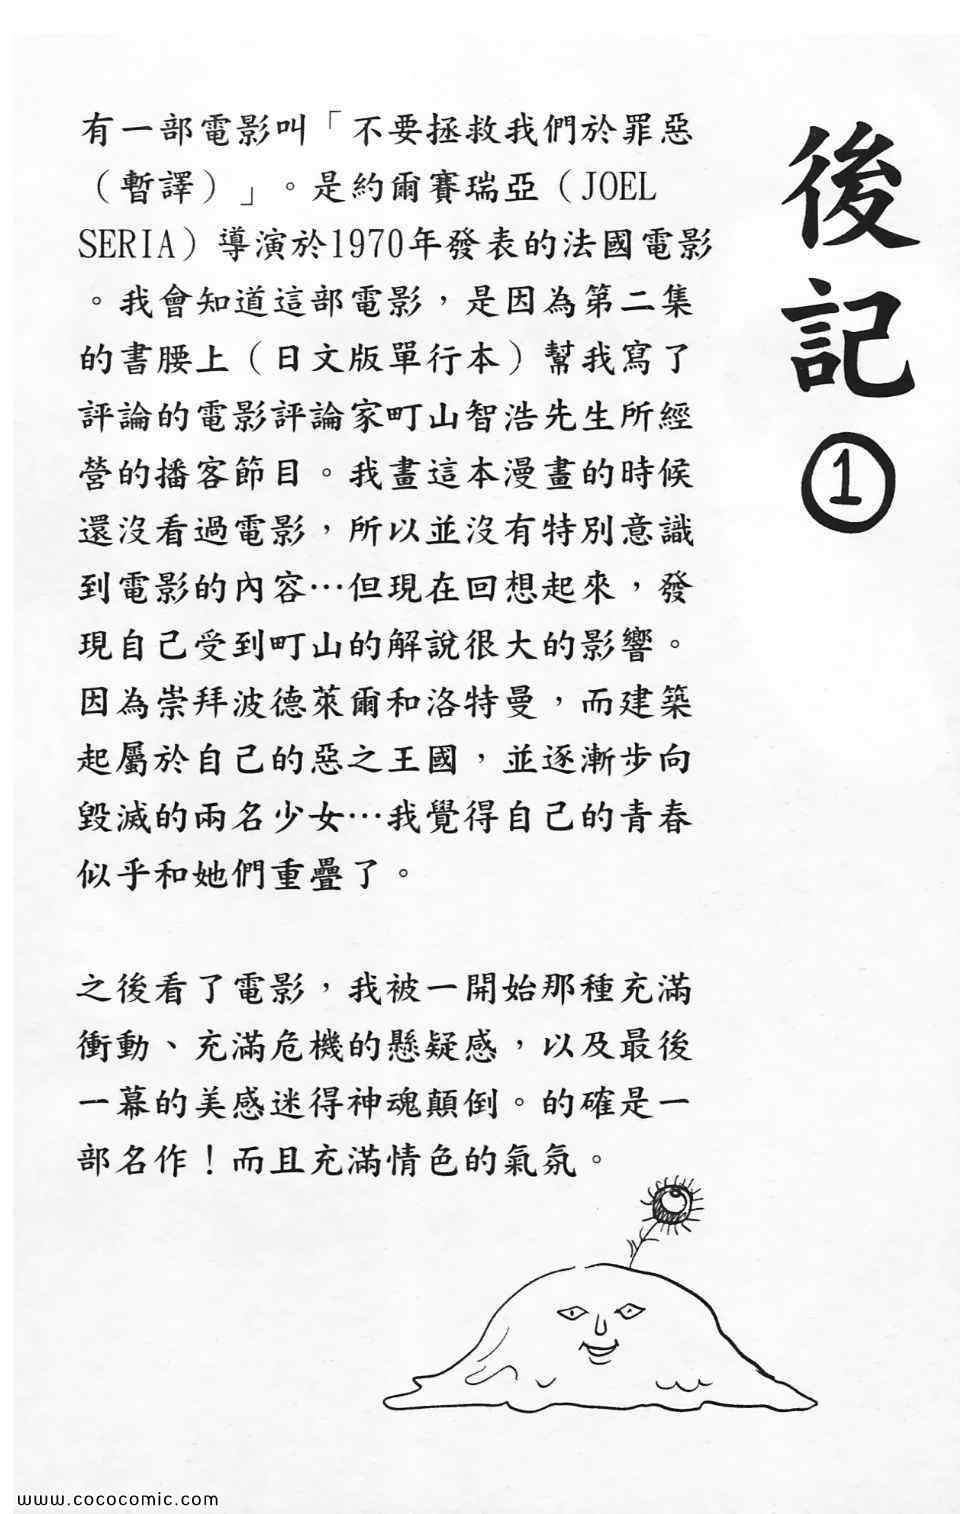 後記
①
有一部電影叫「不要拯救我們於罪惡
（暫譯）」。是約爾賽瑞亞（JOEL
SERIA）導演於1970年發表的法國電影
。我會知道這部電影，是因為第二集
的書腰上（日文版單行本）幫我寫了
評論的電影評論家町山智浩先生所經
營的播客節目。我畫這本漫畫的時候
還沒看過電影，所以並沒有特別意識
到電影的內容…但現在回想起來，發
現自己受到町山的解說很大的影響。
因為崇拜波德萊爾和洛特曼，而建築
起屬於自己的惡之王國，並逐漸步向
毀滅的兩名少女…我覺得自己的青春
似乎和她們重疊了。
之後看了電影，我被一開始那種充滿
衝動、充滿危機的懸疑感，以及最後
一幕的美感迷得神魂顛倒。的確是一
部名作！而且充滿情色的氣氛。
www.cococomic.com